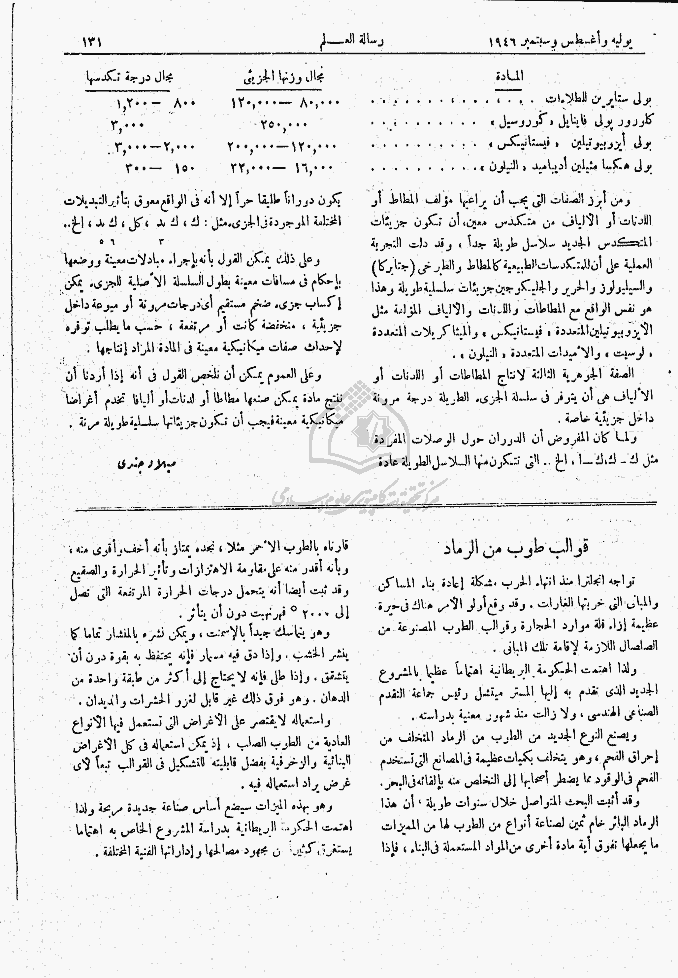 يوليه وأغسطس وسبتمبر ١٩٤٦ رسالة العـلم ١٣١
المـادة مجال وزنها الجزيئى مجال درجة تكدسها
بولى ستايرين للطلاءات ٨٠,٠٠٠ — ١٢٠,٠٠٠ ٨٠٠ — ١,٢٠٠
كلورور بولى فاينايل « كوروسيل » ٢٥٠,٠٠٠ ٣,٠٠٠
بولى أيزوبيوتيلين « فيستانيكس » ١٢٠,٠٠٠ — ٢٠٠,٠٠٠ ٢,٠٠٠ — ٣,٠٠٠
بولى هكسا مثيلين أديباميد « النيلون » ١٦,٠٠٠ — ٢٢,٠٠٠ ١٥٠ — ٣٠٠
ومن أبرز الصفات التى يجب أن يراعيها مؤلف المطاط أو
اللدنات أو الألياف من متكدس معين، أن تكون جزيئات
المتكدس الجديد سلاسل طويلة جداً ، وقد دلت التجربة
العملية على أن للمتكدسات الطبيعية كالمطاط والطبرخى (جتابركا)
والسيليولوز والحرير والجليكوجين جزيئات سلسلية طويلة وهذا
هو نفس الواقع مع المطاطات واللدنات والألياف المؤلفة مثل
الايزوبيوتيلين المتعددة « فيستانيكس » والميثاكريلات المتعددة
« لوسيت » والأميدات المتعددة « النيلون » .
الصفة الجوهرية الثالثة لانتاج المطاطات أو اللدنات أو
الألياف هى أن يتوفر فى سلسلة الجزىء الطويلة درجة مرونة
داخل جزيئية خاصة .
ولما كان المفروض أن الدوران حول الوصلات المفردة
مثل ك – ك، ك – ا ، الخ .. التى تتكون منها السلاسل الطويلة عادة
يكون دوراناً طليقا حراً إلا أنه فى الواقع معوق بتأثير التبديلات
المختلفة الموجودة فى الجزىء مثل : ك
وعلى ذلك يمكن القول بأنه بإجراء مبادلات معينة ووضعها
بإحكام فى مسافات معينة بطول السلسلة الأصلية للجزىء يمكن
إكساب جزىء ضخم مستقيم أى درجات مرونة أو ميوعة داخل
جزيئية ، منخفضة كانت أو مرتفعة ، حسب ما يطلب توفره
لإحداث صفات ميكانيكية معينة فى المادة المراد إنتاجها .
وعلى العموم يمكن أن نلخص القول فى أنه إذا أردنا أن
ننتج مادة يمكن صنعها مطاطا أو لدنات أو أليافا تخدم أغراضا
ميكانيكية معينة فيجب أن تكون جزيئاتها سلسلية طويلة مرنة .
ميلاد جندى
قوالب طوب من الرماد
تواجه انجلترا منذ انتهاء الحرب مشكلة إعادة بناء المساكن
والمبانى التى خربتها الغارات . وقد وقع أولو الأمر هناك فى حيرة
عظيمة إزاء قلة موارد الحجارة وقوالب الطوب المصنوعة من
الصلصال اللازمة لإقامة تلك المبانى .
ولذا اهتمت الحكومة البريطانية اهتماماً عظيما بالمشروع
الجديد الذى تقدم به إليها المستر ميتشل رئيس جماعة التقدم
الصناعى الهندسى ، ولا زالت منذ شهور معنية بدراسته .
ويصنع النوع الجديد من الطوب من الرماد المتخلف من
إحراق الفحم ، وهو يتخلف بكميات عظيمة فى المصانع التى تستخدم
الفحم فى الوقود مما يضطر أصحابها إلى التخلص منه بإلقائه فى البحر.
وقد أثبت البحث المتواصل خلال سنوات طويلة ، أن هذا
الرماد البائر خام ثمين لصناعة أنواع من الطوب لها من المميزات
ما يجعلها تفوق أية مادة أخرى من المواد المستعملة فى البناء ، فإذا
قارناه بالطوب الأحمر مثلا ، نجده يمتاز بأنه أخف وأقوى منه ،
وبأنه أقدر منه على مقاومة الاهتزازات وتأثير الحرارة والصقيع
وقد ثبت أيضا أنه يتحمل درجات الحرارة المرتفعة التى تصل
إلى ٢٠٠٠ ° فهرنهيت دون أن يتأثر .
وهو يتماسك جيداً بالاسمنت ، ويمكن نشره بالمنشار تماما كما
ينشر الخشب . وإذا دق فيه مسمار فإنه يحتفظ به بقوة دون أن
يتشقق . وإذا طلى فإنه لا يحتاج إلى أكثر من طبقة واحدة من
الدهان . وهو فوق ذلك غير قابل لغزو الحشرات والديدان .
واستعماله لا يقتصر على الأغراض التى تستعمل فيها الأنواع
العادية من الطوب الصلب ، إذ يمكن استعماله فى كل الأغراض
البنائية والزخرفية بفضل قابليته للتشكيل فى القوالب تبعا لأى
غرض يراد استعماله فيه .
وهو بهذه الميزات سيضع أساس صناعة جديدة مربحة ولذا
اهتمت الحكومة البريطانية بدراسة المشروع الخاص به اهتماما
يستغرق كثيراً من مجهود مصالحها وإداراتها الفنية المختلفة .